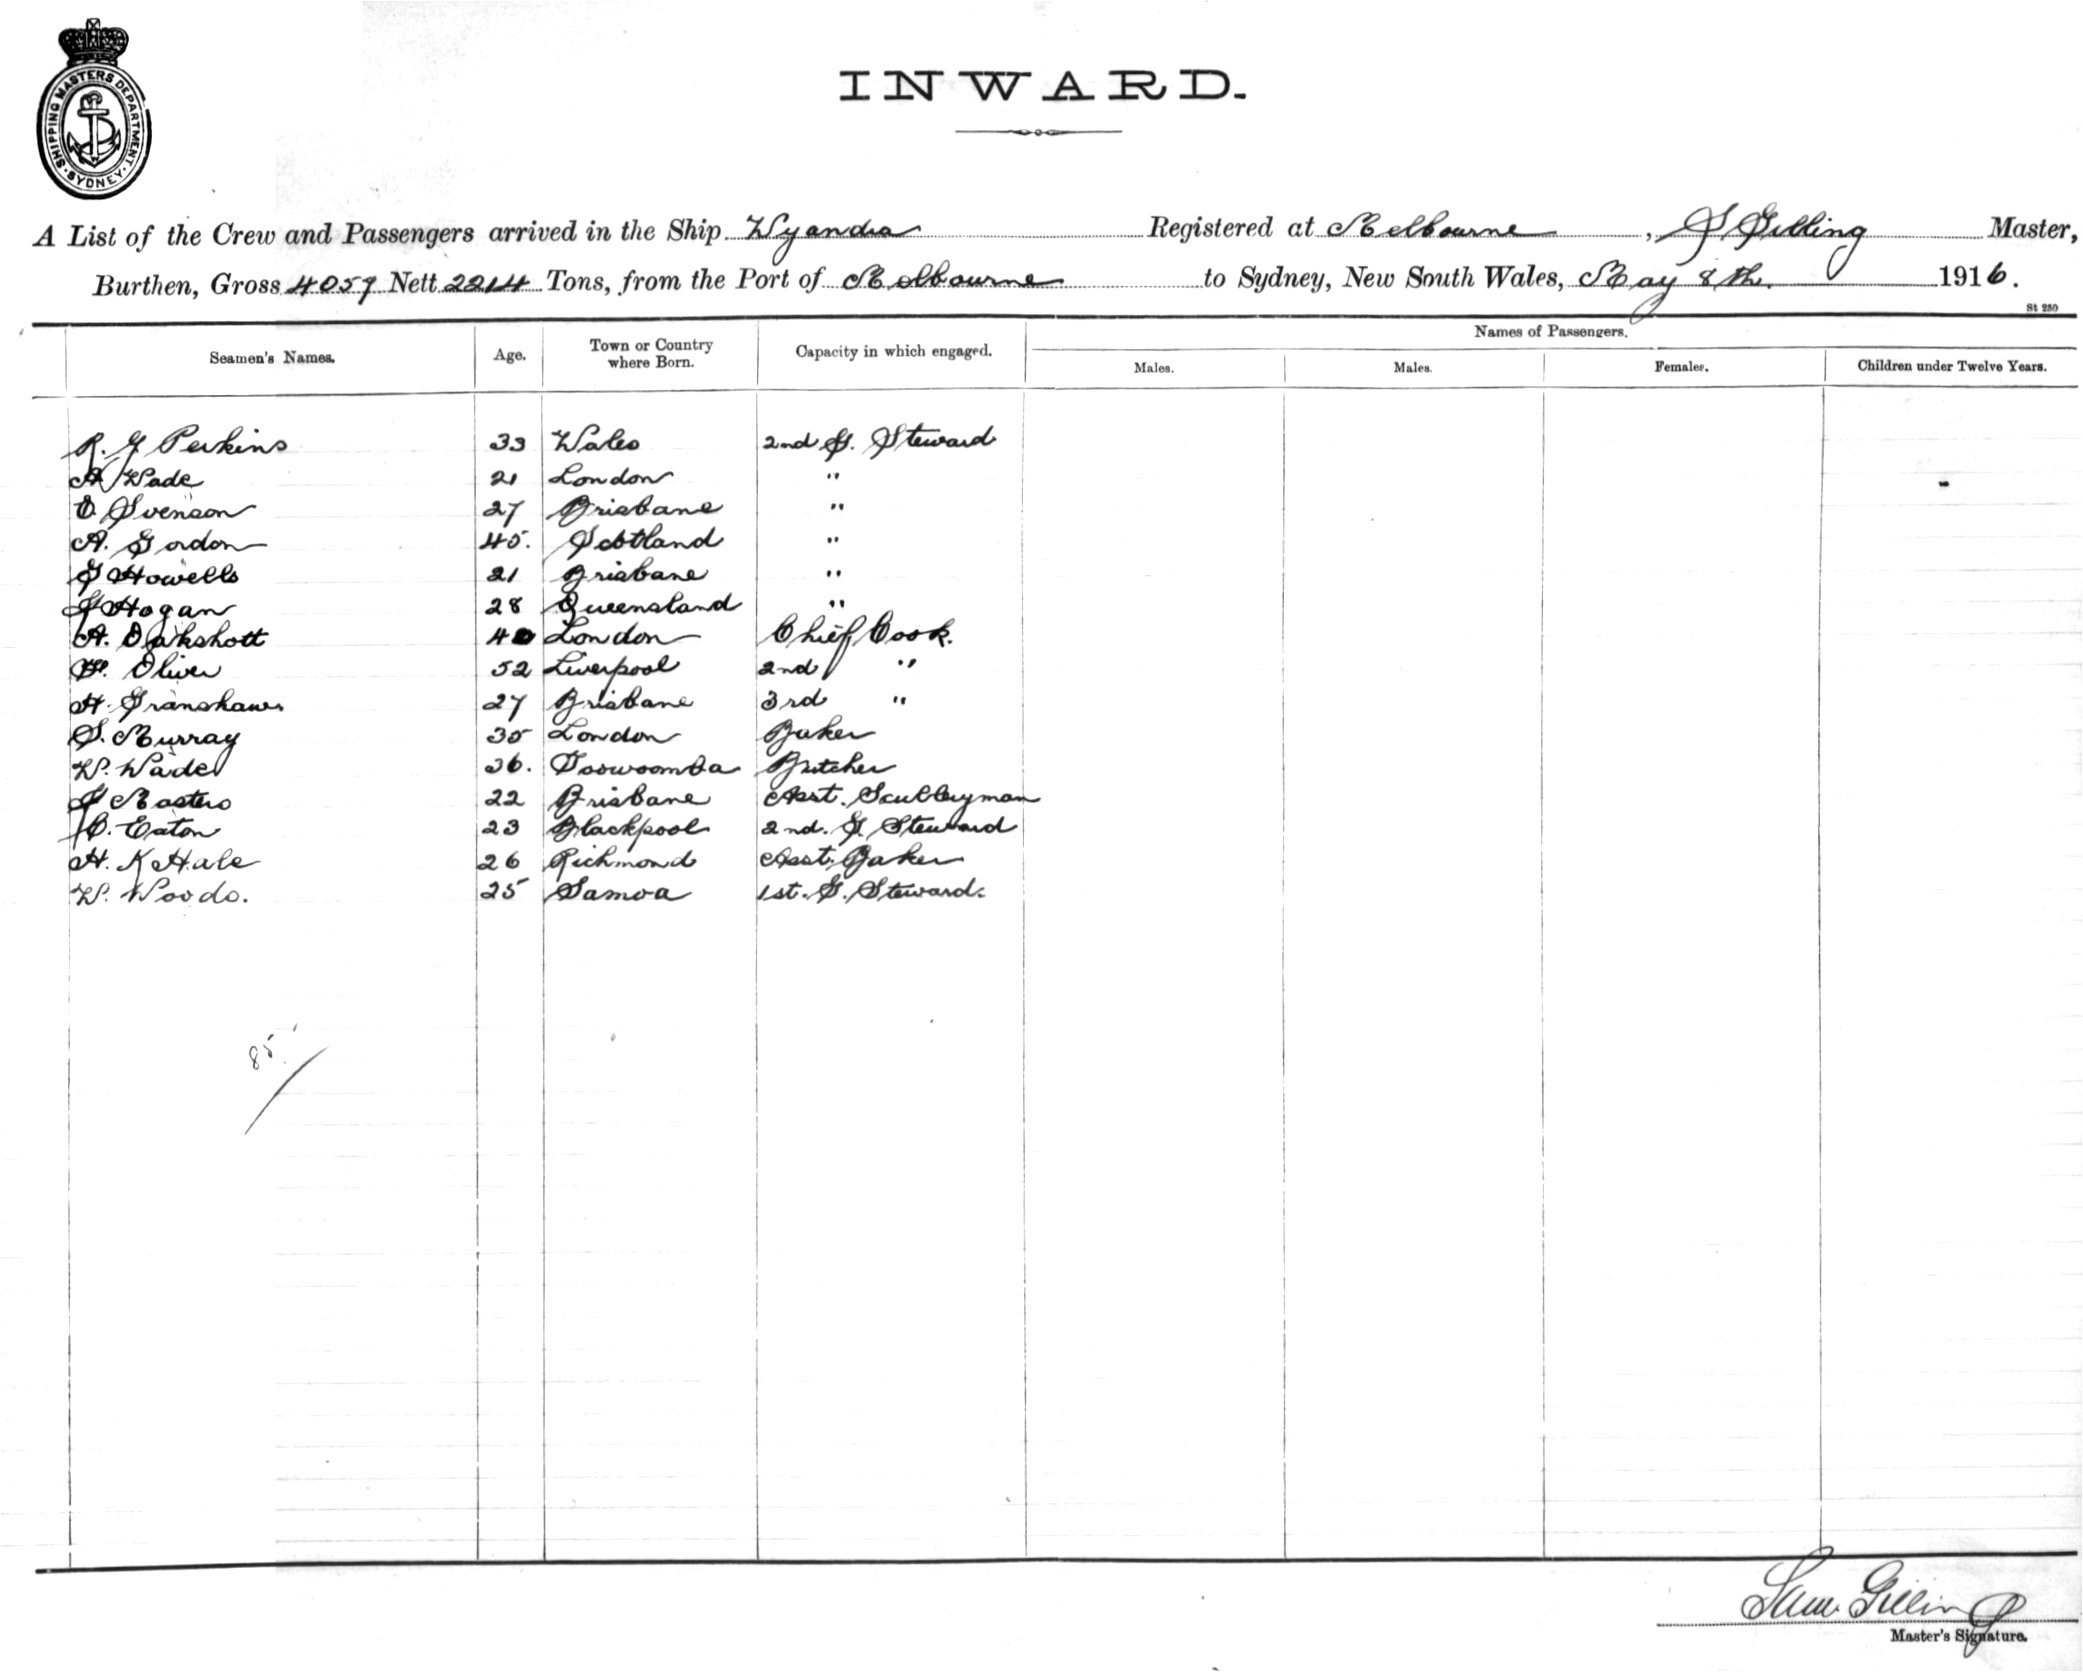 SHIPPING MASTERS DEPARTMENT. SYDNEY.
INWARD.
A List of the Crew and Passengers arrived in the Ship Wyandra Registered at Melbourne, S Gilling Master,
Burthen, Gross 4059 Nett 2214 Tons, from the Port of Melbourne to Sydney, New South Wales, May 8th. 1916.
St 250
Seamen's Names. Age. Town or Country where Born. Capacity in which engaged. Names of Passengers.
Males. Males. Females. Children under Twelve Years.
R. G Perkins 33 Wales 2nd S. Steward
A Wade 21 London "
O. Svenson 27 Brisbane "
A. Gordon 45. Scotland "
G Howells 21 Brisbane "
J Hogan 28 Queensland "
A. Oakshott 40 London Chief Cook.
W. Oliver 52 Liverpool 2nd "
H. Granshaw 27 Brisbane 3rd "
S. Murray 35 London Baker
W. Wade 36. Toowoomba Butcher
J Masters 22 Brisbane Asst. Sculleryman
C. Eaton 23 Blackpool 2nd. S. Steward
H. K Hale 26 Richmond Asst. Baker
W. Woods. 25 Samoa 1st. S. Steward.
85
Sam Gilling
Master's Signature.